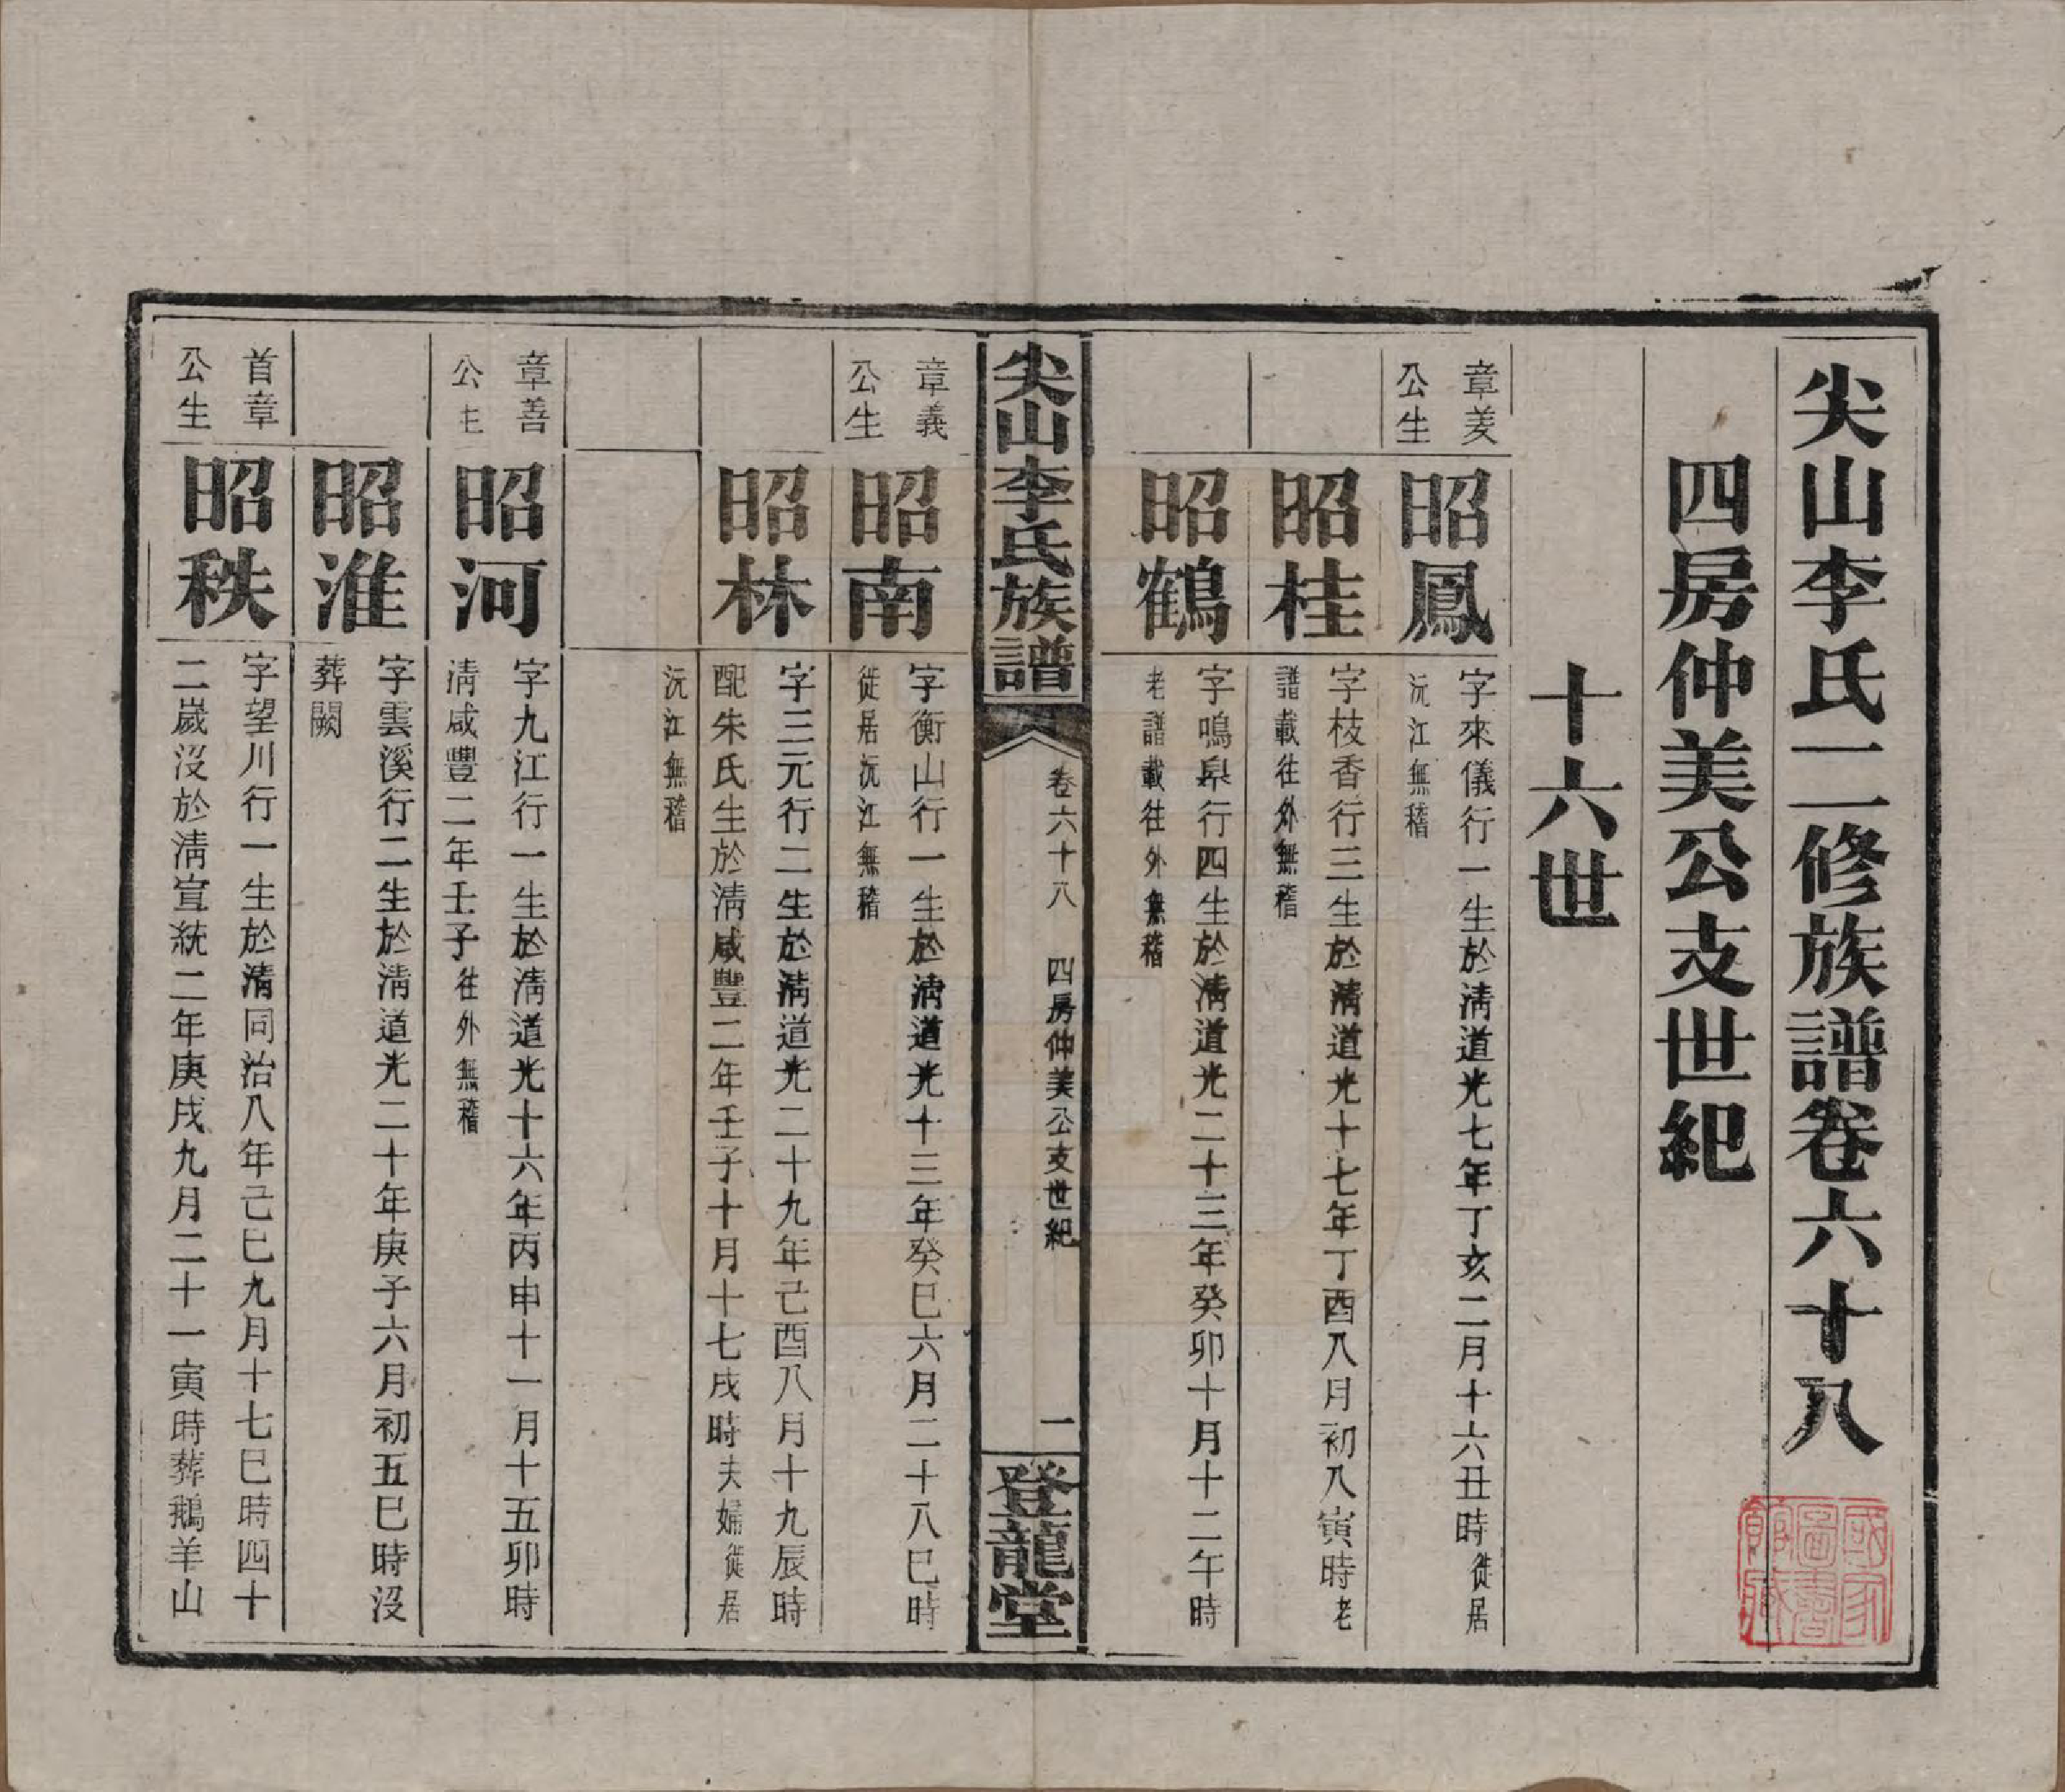 尖山李氏二修族譜卷六十八
四房仲美公支世紀
十六世
章美
公生
昭鳳
字來儀行一生於清道光七年丁亥二月十六丑時徙居
沅江無稽
昭桂
字枝香行三生於清道光十七年丁酉八月初八寅時老
譜載往外無稽
昭鶴
字鳴臯行四生於清道光二十三年癸卯十月十二午時
老譜載往外無稽
尖山李氏族譜
卷六十八
四房仲美公支世紀
一
登龍堂
章義
公生
昭南
字衡山行一生於清道光十三年癸巳六月二十八巳時
徙居沅江無稽
昭林
字三元行二生於清道光二十九年己酉八月十九辰時
配朱氏生於清咸豐二年壬子十月十七戌時夫婦徙居
沅江無稽
章善
公生
昭河
字九江行一生於清道光十六年丙申十一月十五卯時
清咸豐二年壬子往外無稽
昭淮
字雲溪行二生於清道光二十年庚子六月初五巳時沒
葬闕
首章
公生
昭秩
字望川行一生於清同治八年己巳九月十七巳時四十
二歲沒於清宣統二年庚戌九月二十一寅時葬鵝羊山
國家
圖書
館藏